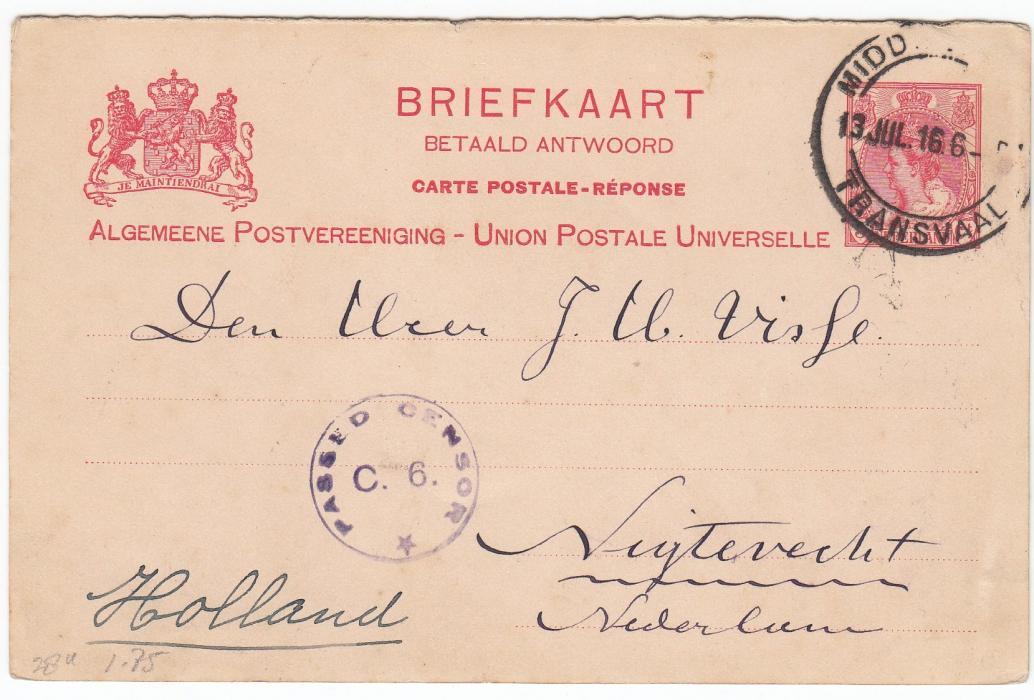 BRIEFKAART
BETAALD ANTWOORD
CARTE POSTALE-RÉPONSE
ALGEMEENE POSTVEREENIGING - UNION POSTALE UNIVERSELLE
JE MAINTIENDRAI
MIDD
13 JUL. 16. 6-
TRANSVAAL
Den Heer J. W. Visse
PASSED CENSOR
C. 6.
Nigtevecht
Holland
Nederlan
1.75